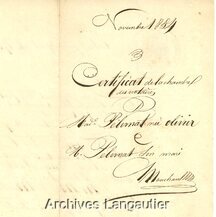 Novembre 1884
3
Certificat de la chambre
des notaires
Mad. Pelomat née olivier
&
M. Pelomat son mari
Archives Langautier